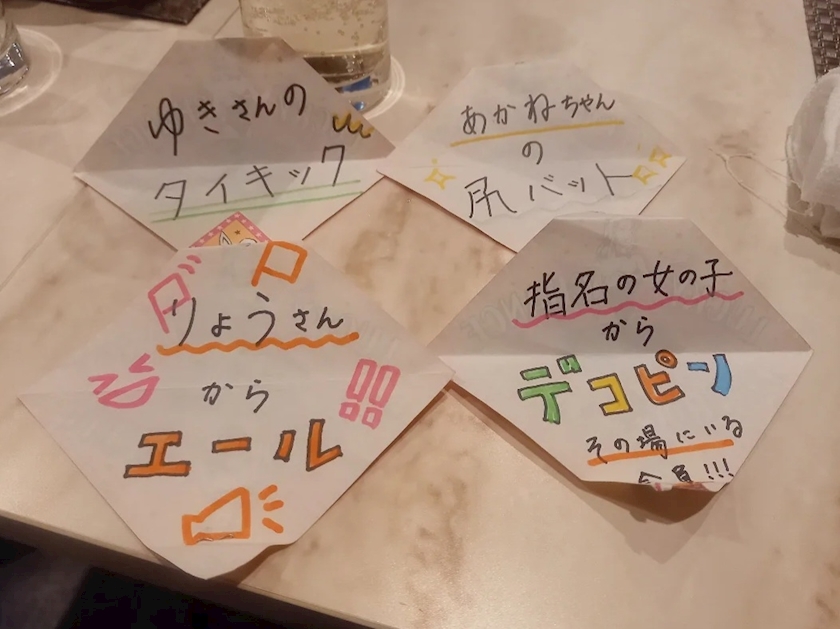 ゆきさんの
タイキック
あかねちゃん
の
尻バット
りょうさん
から
エール
!!
指名の女の子
から
デコピン
その場にいる
全員!!!